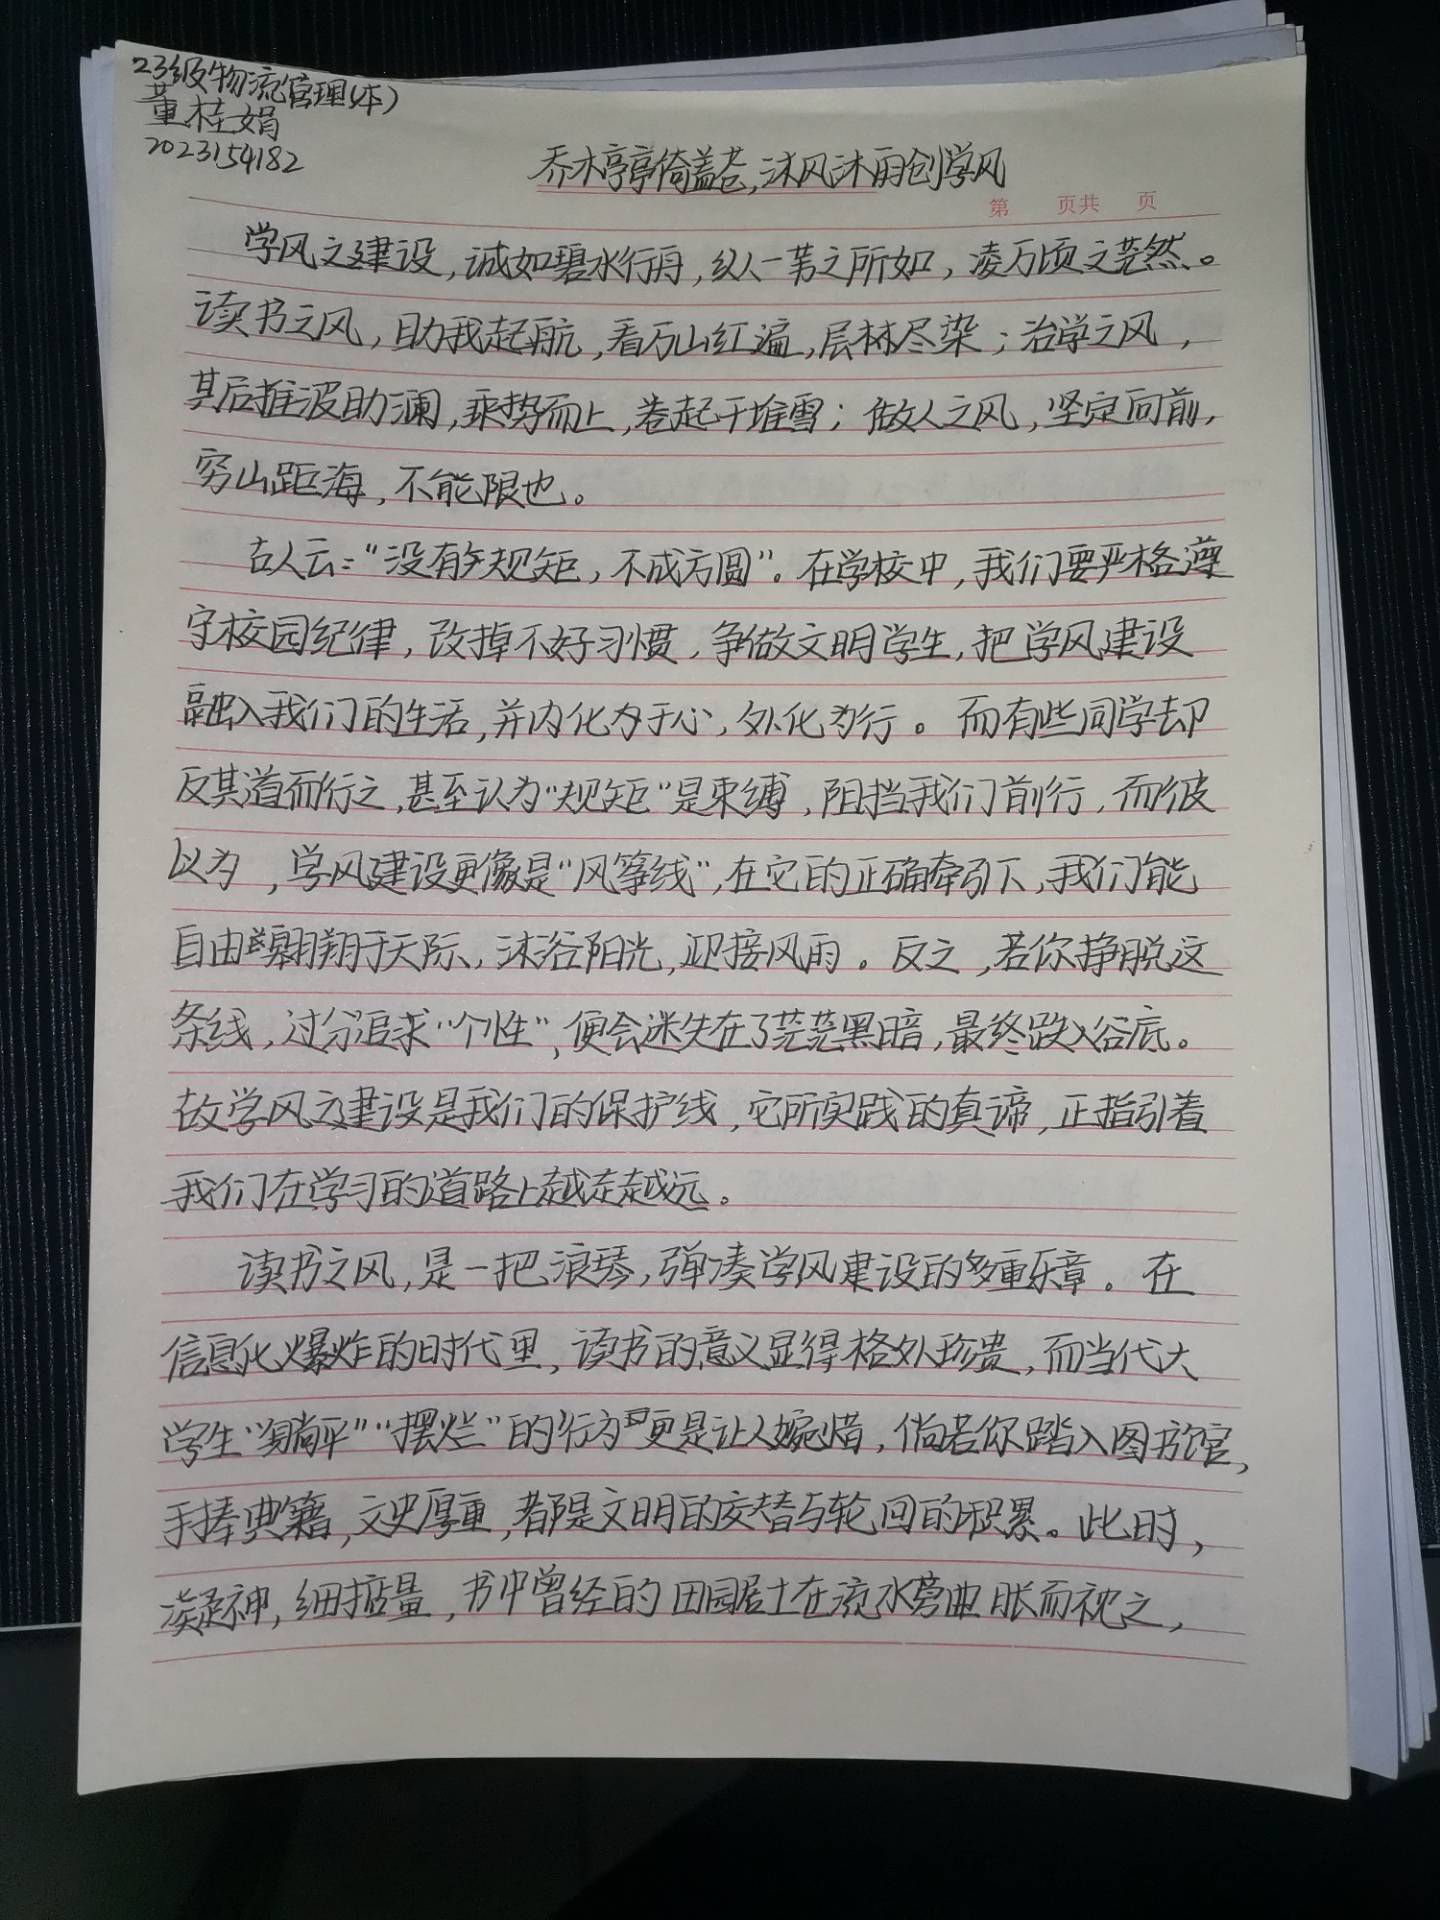 23级物流管理(本)
董桂娟
2023154182
乔木亭亭倚盖苍,沐风沐雨创学风
第 页共 页
学风之建设,诚如碧水行舟,纵一苇之所如,凌万顷之茫然。
读书之风,助我起航,看万山红遍,层林尽染;治学之风,
其后推波助澜,乘势而上,卷起千堆雪;做人之风,坚定向前,
穷山距海,不能限也。
古人云:“没有规矩,不成方圆”。在学校中,我们要严格遵
守校园纪律,改掉不好习惯,争做文明学生,把学风建设
融入我们的生活,并内化为于心,外化为行。而有些同学却
反其道而行之,甚至认为“规矩”是束缚,阻挡我们前行,而彼
以为,学风建设更像是“风筝线”,在它的正确牵引下,我们能
自由翱翔于天际,沐浴阳光,迎接风雨。反之,若你挣脱这
条线,过分追求“个性”,便会迷失在了茫茫黑暗,最终跌入谷底。
故学风之建设是我们的保护线,它所实践的真谛,正指引着
我们在学习的道路上越走越远。
读书之风,是一把浪琴,弹凑学风建设的多重乐章。在
信息化爆炸的时代里,读书的意义显得格外珍贵,而当代大
学生“躺平”“摆烂”的行为更是让人婉惜,倘若你踏入图书馆,
手捧典籍,文史厚重,都是文明的交替与轮回的积累。此时,
凝神,细掂量,书中曾经的田园居士在流水旁曲肱而枕之,